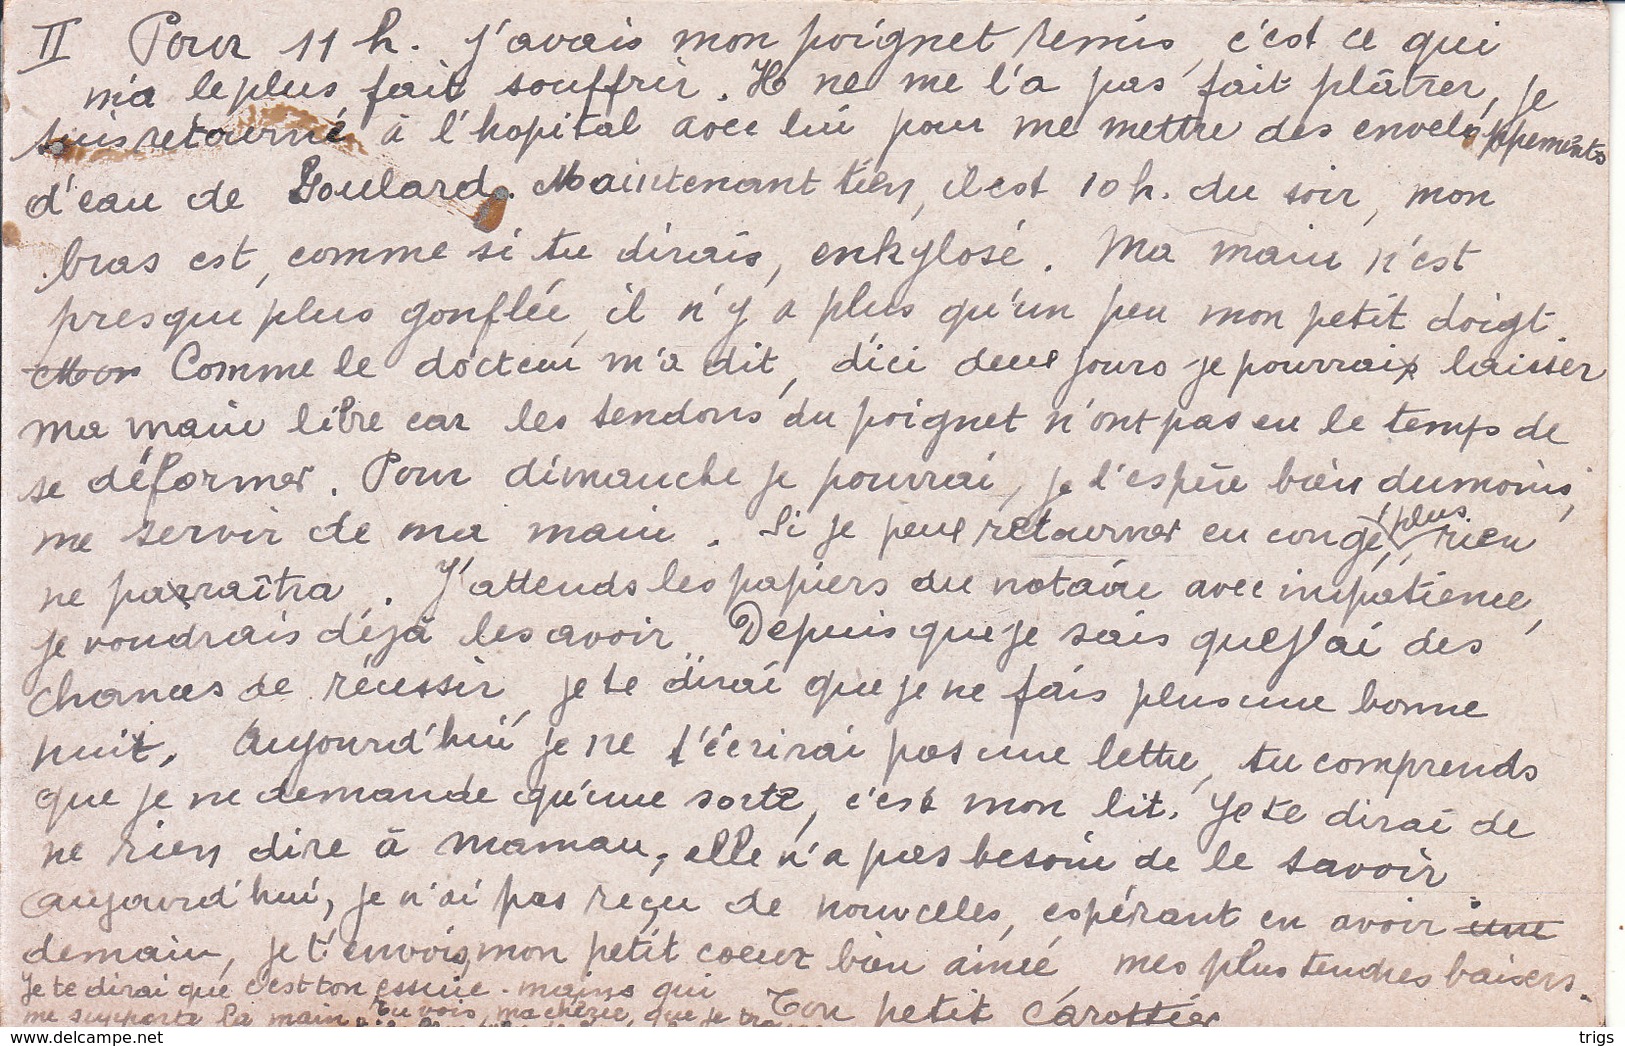 II Pour 11 h. j'avais mon poignet remis, c'est ce qui
m'a le plus fait souffrir. Il ne me l'a pas fait plâtrer, je
suis retourné à l'hopital avec lui pour me mettre des enveloppements
d'eau de Goulard. Maintenant tien, il est 10 h. du soir, mon
bras est, comme si tu dirais, enkylosé. Ma main n'est
presque plus gonflée, il n'y a plus qu'un peu mon petit doigt.
Mon Comme le docteur m'a dit, d'ici deux jours je pourrais laisser
ma main libre car les tendons du poignet n'ont pas eu le temps de
se déformer. Pour dimanche je pourrai, je l'espère bien du moins,
me servir de ma main. Si je peux retourner en congé, plus rien
ne paraîtra. J'attends les papiers du notaire avec impatience,
je voudrais déjà les avoir. Depuis que je sais que j'ai des
chances de réussir, je te dirai que je ne fais plus une bonne
nuit. Aujourd'hui je ne t'écrirai pas une lettre, tu comprends
que je ne demande qu'une sorte, c'est mon lit. Je te dirai de
ne rien dire à maman, elle n'a pas besoin de le savoir.
Aujourd'hui, je n'ai pas reçu de nouvelles, espérant en avoir une
demain, je t'envoie, mon petit coeur bien aimé, mes plus tendres baisers.
Je te dirai que c'est ton essuie-mains qui Ton petit Carottier
me supporte la main. Tu vois, ma chérie, que je
www.delcampe.net trigs